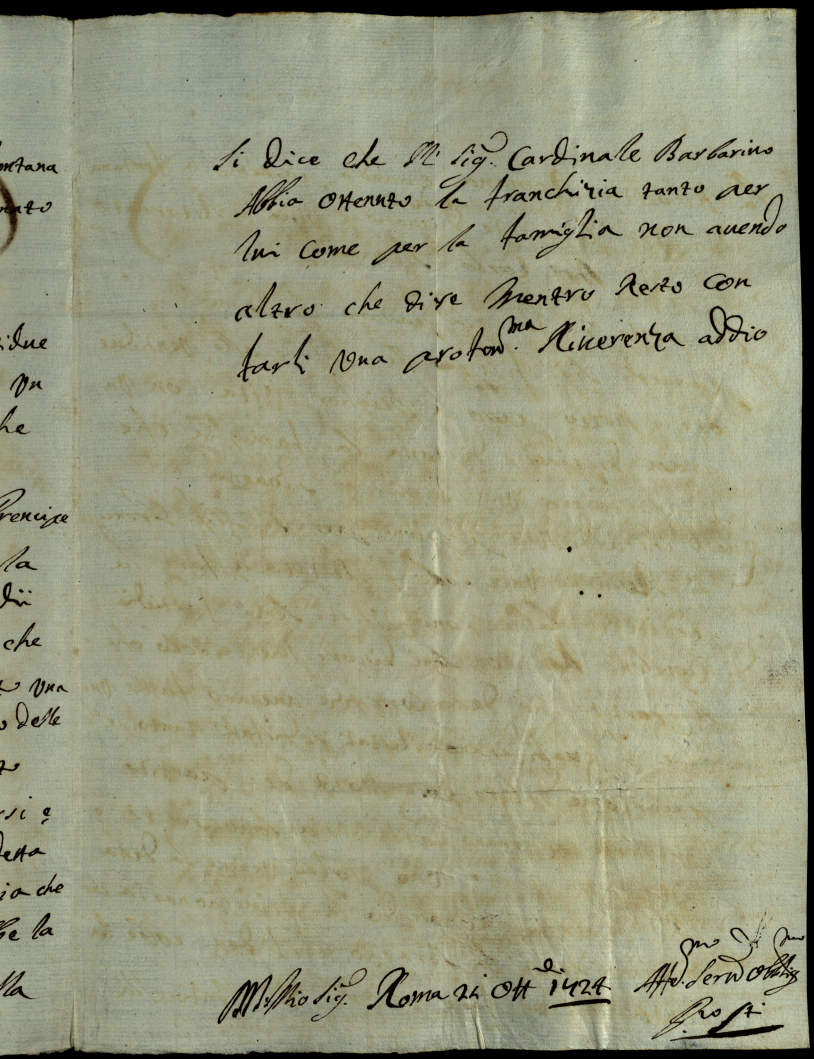 ontana
nato
idue
Vn
he
Prencipe
la
dii
che
Vna
delle
rsi e
detta
ia che
be la
lla
Si dice che Il Sig.r Cardinale Barbarino
Abbia Ottenuto la franchizia tanto per
lui Come per la famiglia non auendo
altro che dire Mentro Resto Con
farli Vna profon.ma Riuerenza addio
Mio Sig.r Roma 21 Ott 1424
Serv